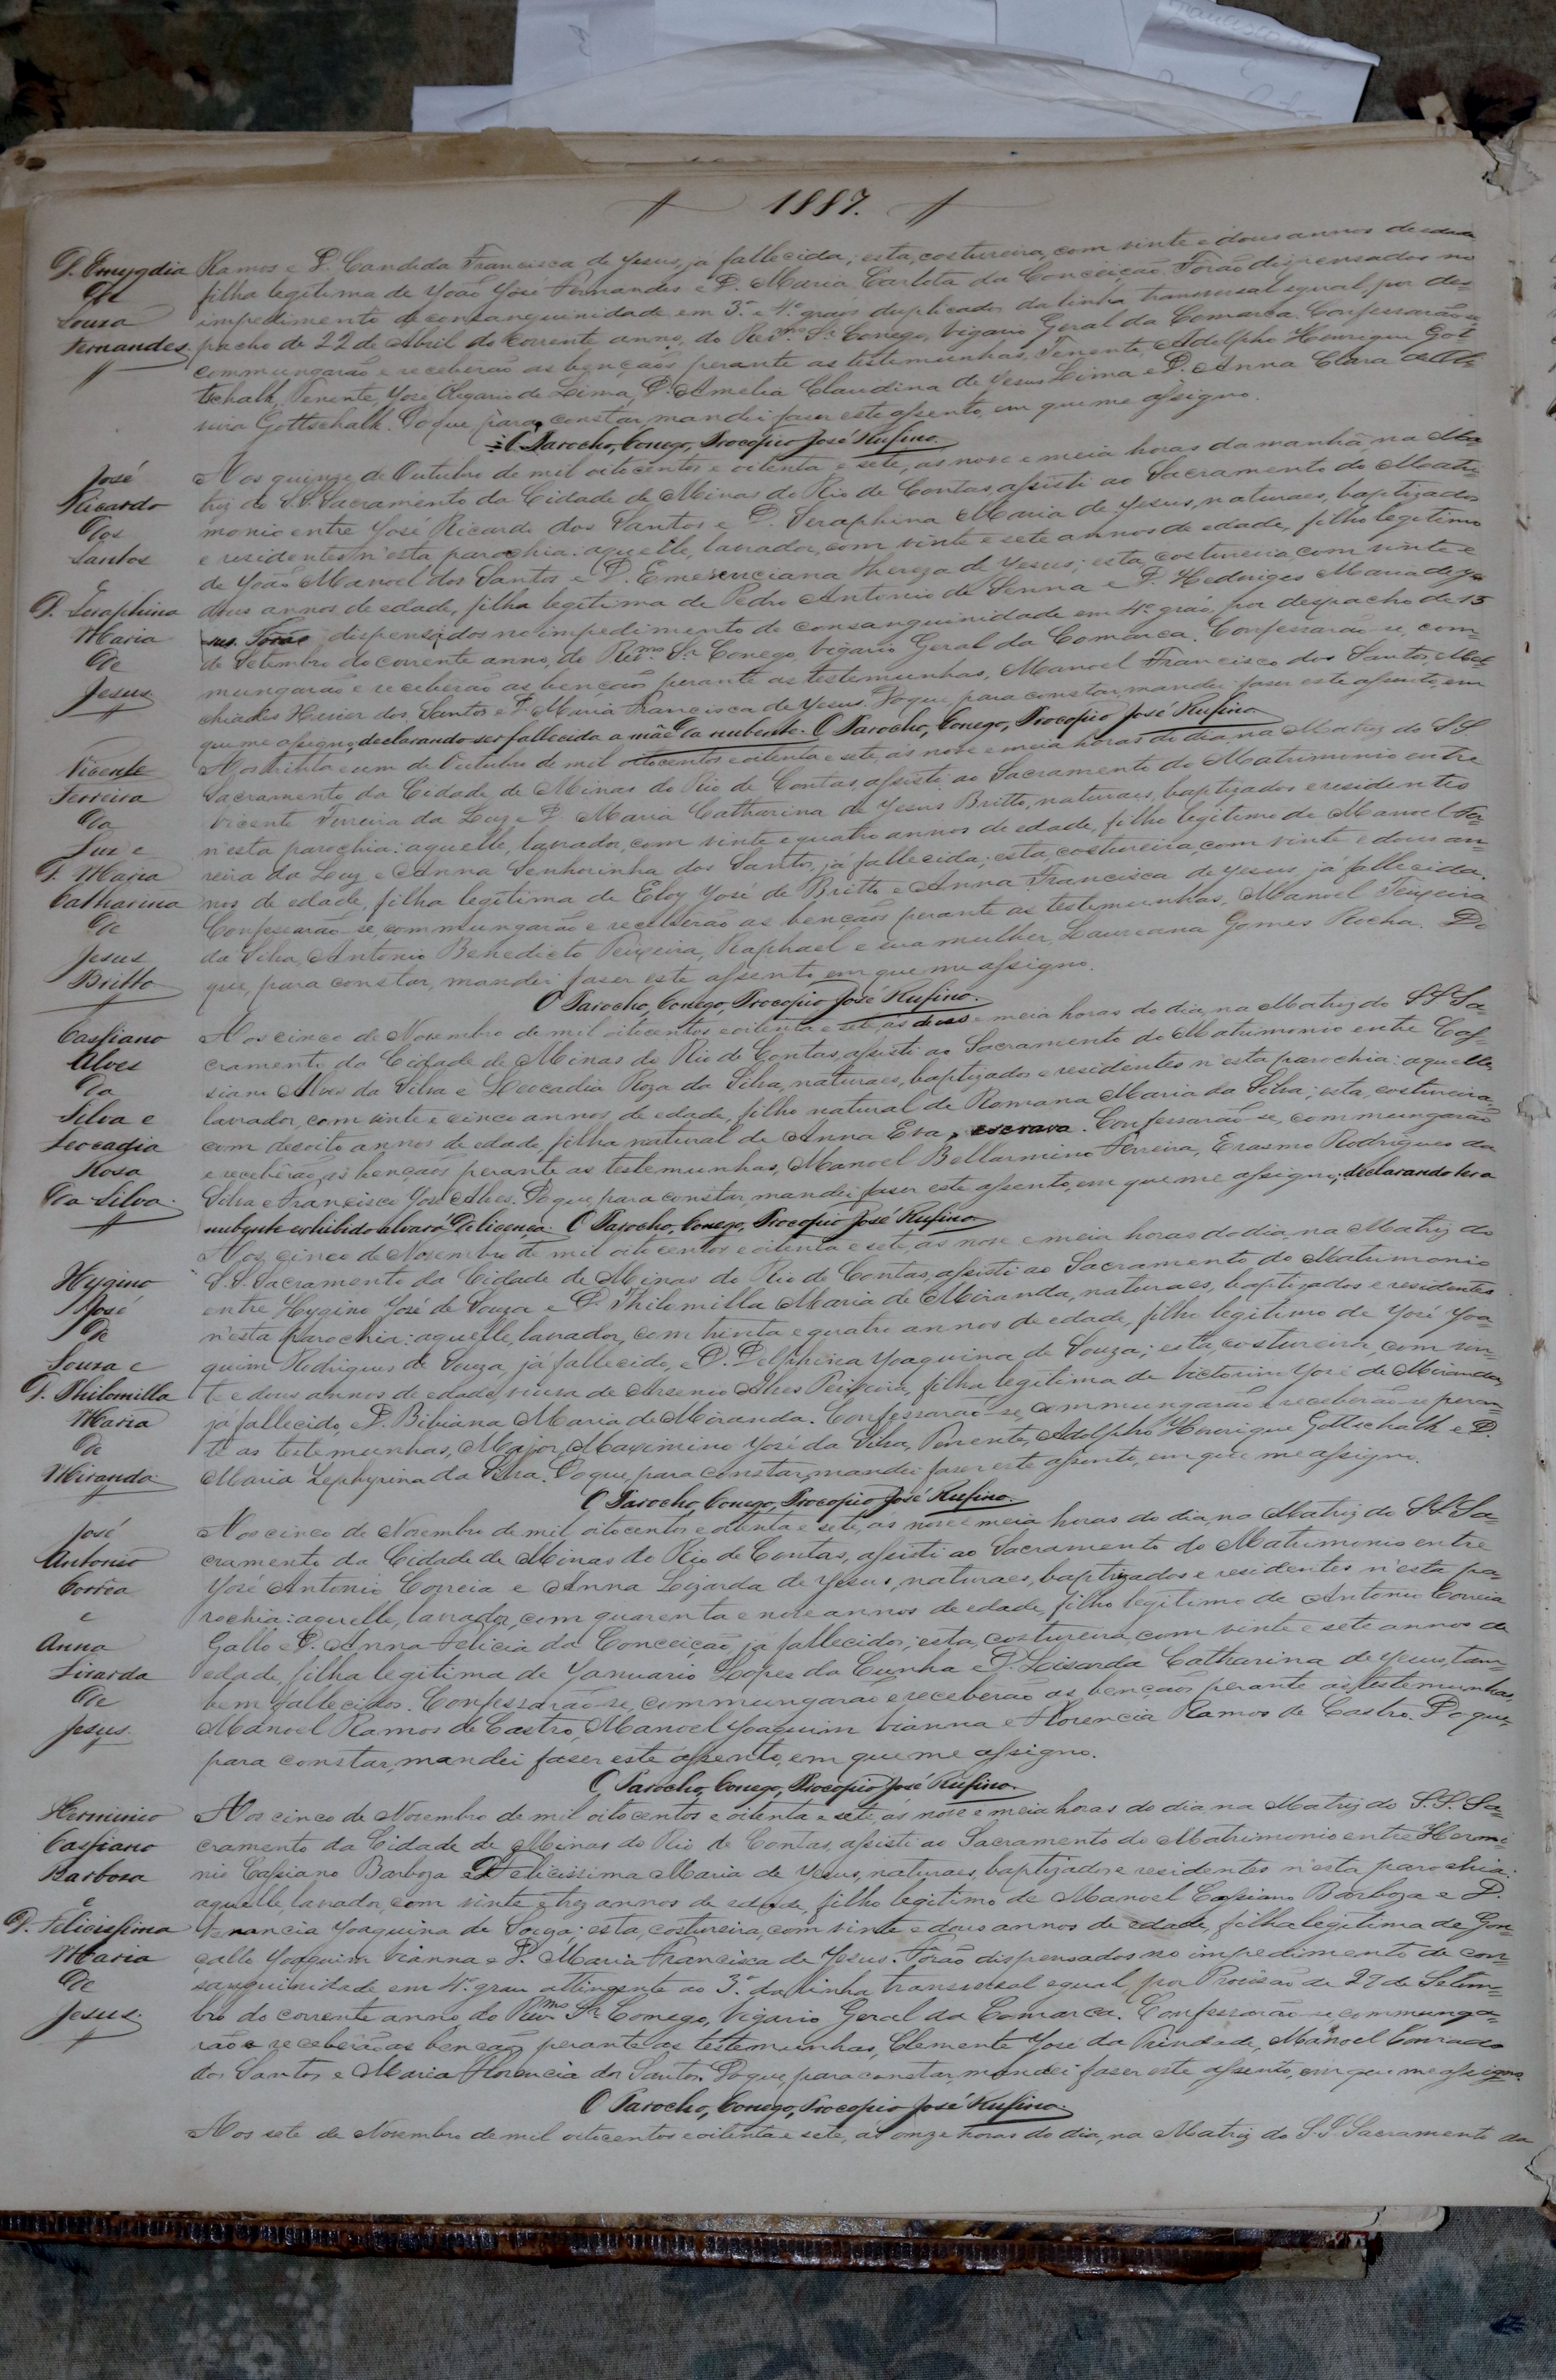 1887.
D. Emygdia
de
Sousa
Fernandes.
Ramos e D. Candida Francisca de Jesus, já fallecida; esta, costureira, com vinte e dous annos de edade
filha legitima de João José Fernandes e D. Maria Carlota da Conceição. Forão dispensados no
impedimento de consanguinidade em 3º e 4º graos duplicados da linha transversal egual, por des-
pacho de 22 de Abril do corrente anno, do Revmo. Sr. Conego, Vigario Geral da Comarca. Confessarão-se
commungarão e receberão as bençãos perante as testemunhas, Tenente, Adolpho Henrique Got
tschalk, Tenente, José Olegario de Lima, D. Amelia Claudina de Jesus Lima e D. Anna Clara de Oli-
veira Gottschalk. Do que para constar, mandei faser este assento, em que me assigno.
O Parocho, Conego, Procopio José Rufino.
José
Ricardo
dos
Santos
e
D. Seraphina
Maria
de
Jesus
Aos quinze de Outubro de mil oitocentos e oitenta e sete, as nove e meia horas da manhã, na Ma-
triz do S.S. Sacramento da Cidade de Minas do Rio de Contas, assisti ao Sacramento do Matri-
monio entre José Ricardo dos Santos e D. Seraphina Maria de Jesus, naturaes, baptizados
e residentes n'esta parochia: aquelle, lavrador, com vinte e sete annos de edade, filho legitimo
de João Manoel dos Santos e D. Emerenciana Thereza de Jesus; esta, costureira, com vinte e
dous annos de edade, filha legitima de Pedro Antonio de Senna e D. Hedwiges Maria de Je-
sus. Forão dispensados no impedimento de consanguinidade em 4º grao, por despacho de 15
de Setembro do corrente anno, do Revmo. Sr. Conego, Vigario Geral da Comarca. Confessarão-se, com-
mungarão e receberão as bençãos perante as testemunhas, Manoel Francisco dos Santos, Mel-
chiades Xavier dos Santos e D. Maria Francisca de Jesus. Do que, para constar, mandei faser este assento, em
que me assigno, declarando ser fallecida a mãe da nubente. O Parocho, Conego, Procopio José Rufino
Vicente
Ferreira
da
Luz e
D. Maria
Catharina
de
Jesus
Britto
Aos trinta e um de Outubro de mil oitocentos e oitenta e sete, ás nove e meia horas do dia, na Matriz do S.S
Sacramento da Cidade de Minas do Rio de Contas, assisti ao Sacramento do Matrimonio entre
Vicente Ferreira da Luz e D. Maria Catharina de Jesus Britto, naturaes, baptizados e residentes
n'esta parochia: aquelle, lavrador, com vinte e quatro annos de edade, filho legitimo de Manoel Fer-
reira da Luz e Anna Senhorinha dos Santos, já fallecida; esta, costureira, com vinte e dous an-
nos de edade, filha legitima de Eloy José de Britto e Anna Francisca de Jesus, já fallecida.
Confessarão-se, commungarão e receberão as bençãos perante as testemunhas, Manoel Teixeira
da Silva, Antonio Benedicto Teixeira, Raphael e sua mulher, Laureana Gomes Rocha. Do
que, para constar, mandei faser este assento em que me assigno.
O Parocho, Conego, Procopio José Rufino.
Cassiano
Alves
da
Silva e
Leocadia
Rosa
da Silva.
Aos cinco de Novembro de mil oitocentos e oitenta e sete, ás e meia horas do dia, na Matriz do S.S. Sa-
cramento da Cidade de Minas do Rio de Contas, assisti ao Sacramento do Matrimonio entre Cas-
siano Alves da Silva e Leocadia Roza da Silva, naturaes, baptizados e residentes n'esta parochia: aquelle,
lavrador, com vinte e cinco annos de edade, filho natural de Romana Maria da Silva; esta, costureira,
com desoito annos de edade, filha natural de Anna Eva, escrava. Confessarão-se, commungarão
e receberão as bençãos perante as testemunhas, Manoel Bellarmino Ferreira, Erasmo Rodrigues da
Silva e Francisco José Alves. Do que, para constar, mandei faser este assento, em que me assigno, declarando ter a
nubente exhibido alvará de licença. O Parocho, Conego, Procopio José Rufino
Hygino
José
de
Sousa e
D. Philomilla
Maria
de
Miranda.
Aos cinco de Novembro de mil oitocentos e oitenta e sete, ás nove e meia horas do dia na Matriz do
S.S. Sacramento da Cidade de Minas do Rio de Contas, assisti ao Sacramento do Matrimonio
entre Hygino José de Souza e D. Philomilla Maria de Miranda, naturaes, baptizados e residentes
n'esta parochia: aquelle, lavrador, com trinta e quatro annos de edade, filho legitimo de José Joa-
quim Rodrigues de Souza, já fallecido, e D. Delphina Joaquina de Souza; esta, costureira, com vin-
te e dous annos de edade, viuva de Arsenio Alves Teixeira, filha legitima de Victorino José de Miranda,
já fallecido, e D. Bibiana Maria de Miranda. Confessarão-se, commungarão e receberão-se peran-
te as testemunhas, Major, Maximino José da Silva, Tenente, Adolpho Henrique Gottschalk e D.
Maria Zephyrina da Silva. Do que, para constar, mandei faser este assento, em que me assigno.
O Parocho, Conego, Procopio José Rufino.
José
Antonio
Corrêa
e
Anna
Lisarda
de
Jesus.
Aos cinco de Novembro de mil oitocentos e oitenta e sete, ás nove e meia horas do dia, na Matriz do S.S. Sa-
cramento da Cidade de Minas do Rio de Contas, assisti ao Sacramento do Matrimonio entre
José Antonio Correia e Anna Lizarda de Jesus, naturaes, baptizados e residentes n'esta pa-
rochia: aquelle, lavrador, com quarenta e nove annos de edade, filho legitimo de Antonio Correia
Gallo e D. Anna Felicia da Conceição, já fallecidos; esta, costureira, com vinte e sete annos de
edade, filha legitima de Januario Lopes da Cunha e D. Lisarda Catharina de Jesus, tam-
bem fallecidos. Confessarão-se, commungarão e receberão as bençãos perante as testemunhas,
Manoel Ramos de Castro, Manoel Joaquim Vianna e Florencia Ramos de Castro. Do que,
para constar, mandei faser este assento, em que me assigno.
O Parocho, Conego, Procopio José Rufino.
Herminio
Cassiano
Barbosa
e
D. Felicissima
Maria
de
Jesus.
Aos cinco de Novembro de mil oitocentos e oitenta e sete, ás nove e meia horas do dia na Matriz do S.S. Sa-
cramento da Cidade de Minas do Rio de Contas, assisti ao Sacramento do Matrimonio entre Hermi
nio Cassiano Barboza e D. Felicissima Maria de Jesus, naturaes, baptizados e residentes n'esta parochia:
aquelle, lavrador, com vinte e trez annos de edade, filho legitimo de Manoel Cassiano Barboza e D.
Venancia Joaquina de Souza; esta, costureira, com vinte e dous annos de edade, filha legitima de Gon-
çallo Joaquim Vianna e D. Maria Francisca de Jesus. Forão dispensados no impedimento de con-
sanguinidade em 4º grau attingente ao 3º da linha transversal egual, por Provisão de 27 de Setem-
bro do corrente anno, do Revmo. Sr. Conego, Vigario Geral da Comarca. Confessarão-se, communga-
rão e receberão as bençãos perante as testemunhas, Clemente José da Trindade, Manoel Conrado
dos Santos e Maria Florencia dos Santos. Do que, para constar, mandei faser este assento, em que me assigno.
O Parocho, Conego, Procopio José Rufino.
Aos sete de Novembro de mil oitocentos e oitenta e sete, ás onze horas do dia, na Matriz do S.S. Sacramento da